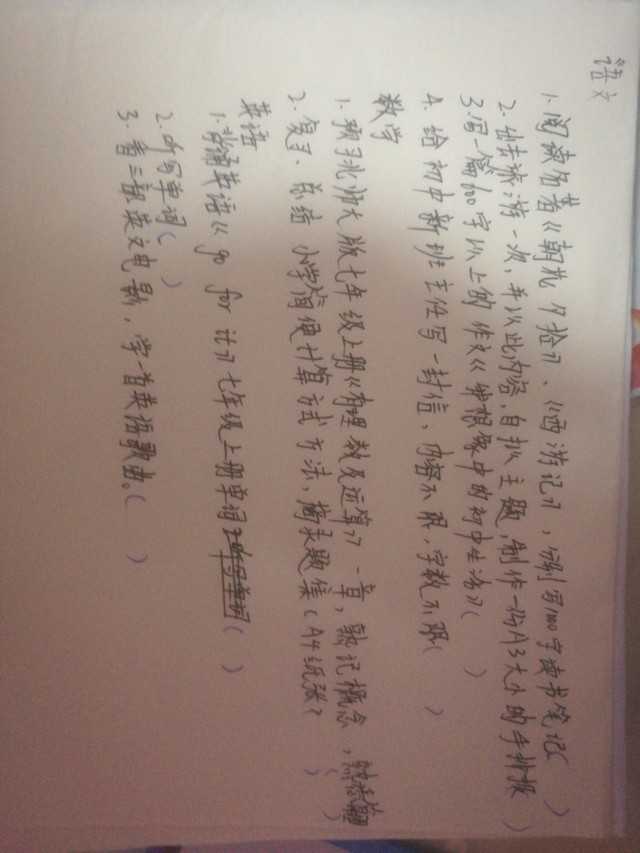 语文
1. 阅读名著《朝花夕拾》、《西游记》,分别写1000字读书笔记( )
2. 出去旅游一次,并以此内容,自拟主题,制作一份A3大小的手抄报( )
3. 写一篇600字以上的作文《我想象中的初中生活》( )
4. 给初中新班主任写一封信,内容不限,字数不限( )
数学
1. 预习北师大版七年级上册《有理数及运算》一章,熟记概念,( )
2. 复习、总结小学简便计算方式方法,摘录题集(A4纸张)( )
英语
1. 背诵英语《go for it》七年级上册单词( )
2. 听写单词( )
3. 看三部英文电影,学一首英语歌曲。( )